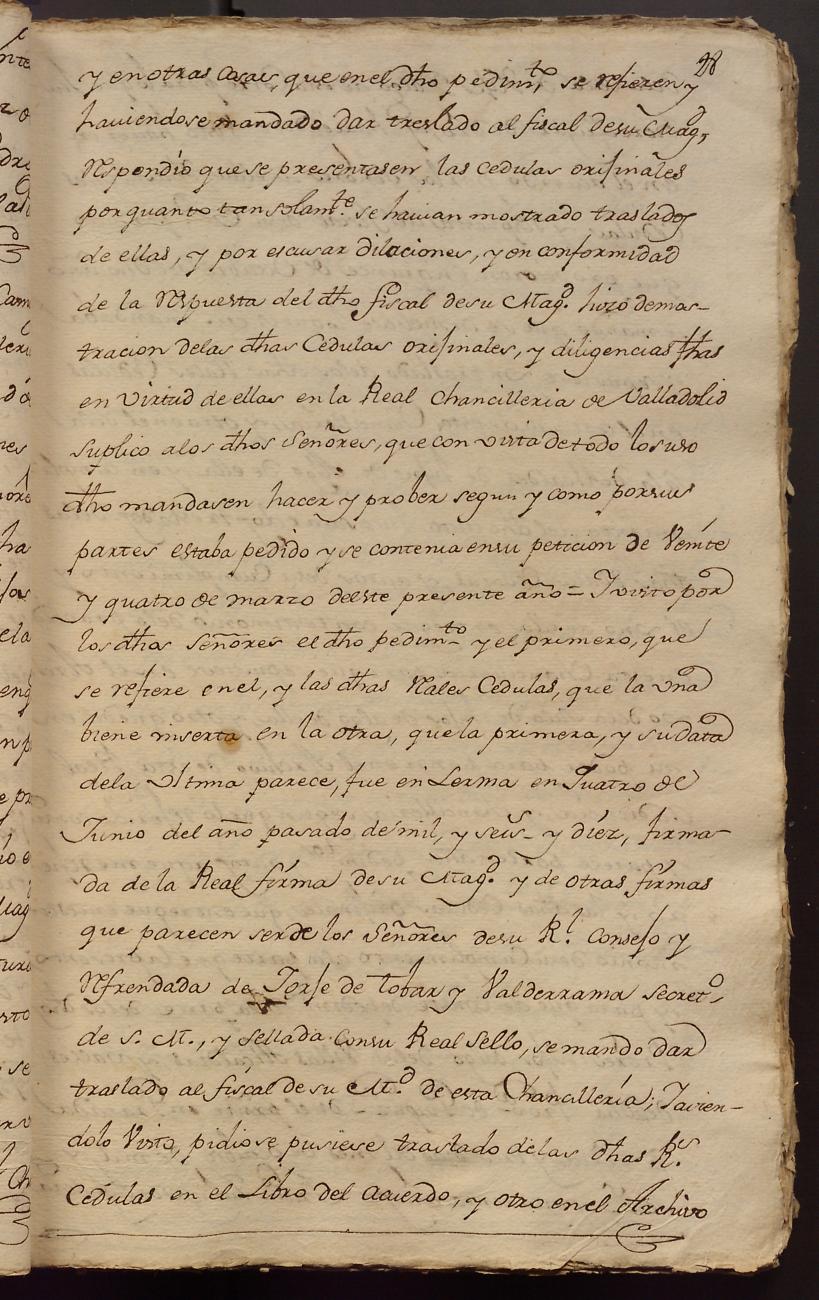 28
y en otras cosas, que en el dho pedimto, se refieren y
haviendose mandado dar treslado al fiscal de su Magd,
Respondio que se presentasen las cedulas orijinales
por quanto tan solamte. se havian mostrado traslados
de ellas, y por escusar dilaciones, y en conformidad
de la Respuesta del dho fiscal de su Magd. hizo demos-
tracion de las dhas Cedulas orijinales, y diligencias fhas
en virtud de ellas en la Real Chancilleria de Valladolid
suplico a los dhos Señores, que con vista de todo lo suso
dho mandasen hacer y prober segun y como por sus
partes estaba pedido y se contenia en su peticion de Veinte
y quatro de marzo deeste presente año = Y visto por
los dhos Señores el dho pedimto y el primero, que
se refiere en el, y las dhas Rales Cedulas, que la una
biene inserta en la otra, que la primera, y su data
de la Ultima parece, fue en Lerma en Quatro de
Junio del año pasado de mil, y seis- y diez, firma-
da de la Real firma de su Magd. y de otras firmas
que parecen ser de los Señores de su Rl. Consejo y
Refrendada de Jorje de tobar y Valderrama secreto,
de S. M., y sellada con su Real Sello, se mando dar
traslado al fiscal de su Md. de esta Chancillería; Y avien-
dolo Visto, pidio se pusiese traslado de las dhas Rs.
Cedulas en el Libro del Acuerdo, y otro en el Archivo